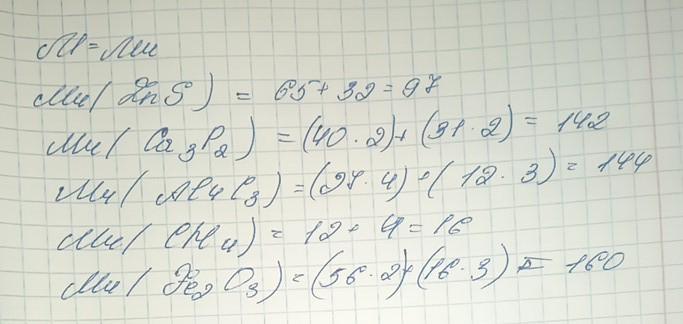 M = Mм
Mм( ZnS ) = 65 + 32 = 97
Mм( Ca₃P₂ ) = (40 · 2) + (31 · 2) = 142
Mм( Al₄C₃ ) = (27 · 4) + ( 12 · 3 ) = 144
Mм( CH₄ ) = 12 + 4 = 16
Mм( Fe₂O₃ ) = (56 · 2) + (16 · 3) = 160